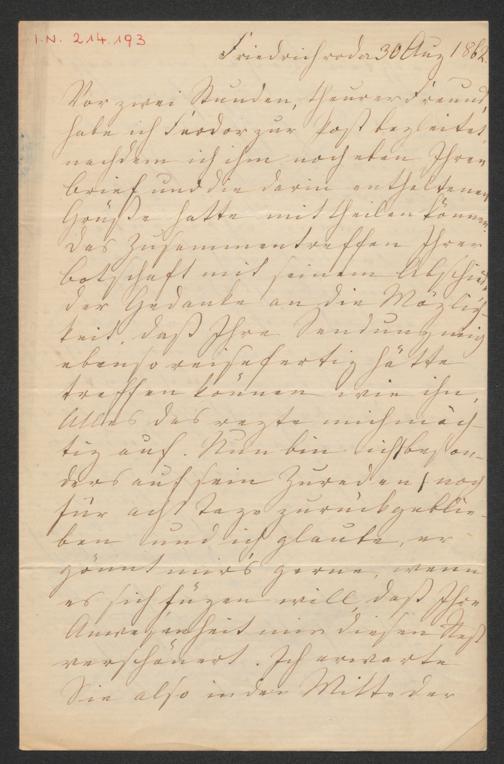 I.N. 214.193
Friedrichroda 30 Aug 1862
Vor zwei Stunden, theurer Freund,
habe ich Feodor zur Post begleitet
nachdem ich ihm noch eben Ihren
Brief und die darin enthaltenen
Grüße hatte mittheilen können.
Das Zusammentreffen Ihrer
Botschaft mit seinem Abschied,
der Gedanke an die Möglich-
keit, daß Ihre Sendung mich
ebenso reisefertig hätte
treffen können wie ihn,
Alles das regte mich mäch-
tig auf. Nun bin ich (beson-
ders auf sein Zureden) noch
für acht Tage zurückgeblie-
ben und ich glaube, er
gönnt mir's gerne, wenn
es sich fügen will, daß Ihre
Anwesenheit mir diesen Rest
verschönert. Ich erwarte
Sie also in der Mitte der